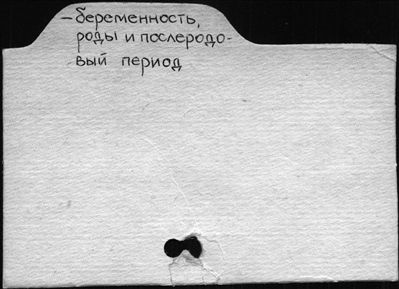 – беременность,
роды и послеродо-
вый период